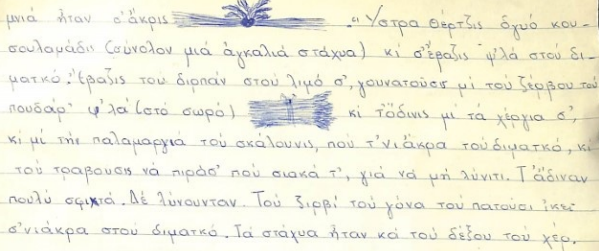 μνιά ήταν σ'άκρις "Ύστρα θέρτζις δγυό κου-
σουλαμάδις (σύνολον μιά άγκαλιά στάχυα) κί σ'έβαζις ψ'λά στού δι-
ματκό. Έβαζις του διρπάν στού λιμό σ', γουνατούσις μί τού ζέρβου τού
πουδάρ' ψ'λά (στό σωρό) κί τ'όδινις μί τά χέργια σ',
κί μί τήν παλαμαργιά τού σκάλουνις, πού τ'νιάκρα τού διματκό, κί
τού τραβούσις νά πιράσ' πού σιακά τ', γιά νά μή λύνιτι. Τ'άδιναν
πουλύ σφιχτά. Δέ λύνουνταν. Τού ζιρβί τού γόνα τού πατούσι ίκεί
σ'νιάκρα στού διματκό. Τά στάχυα ήταν κά τού δέξου τού χέρ.